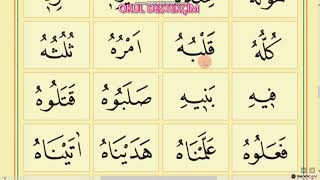 OKUL DESTEKÇİM
كُلُّهُ قَلْبُهُ اَمْرُهُ ثُلُثُهُ
فٖيهِ بَنٖيهِ صَلَبُوهُ قَتَلُوهُ
فَعَلُوهُ عَلَّمْنَاهُ هَدَيْنَاهُ اٰتَيْنَاهُ